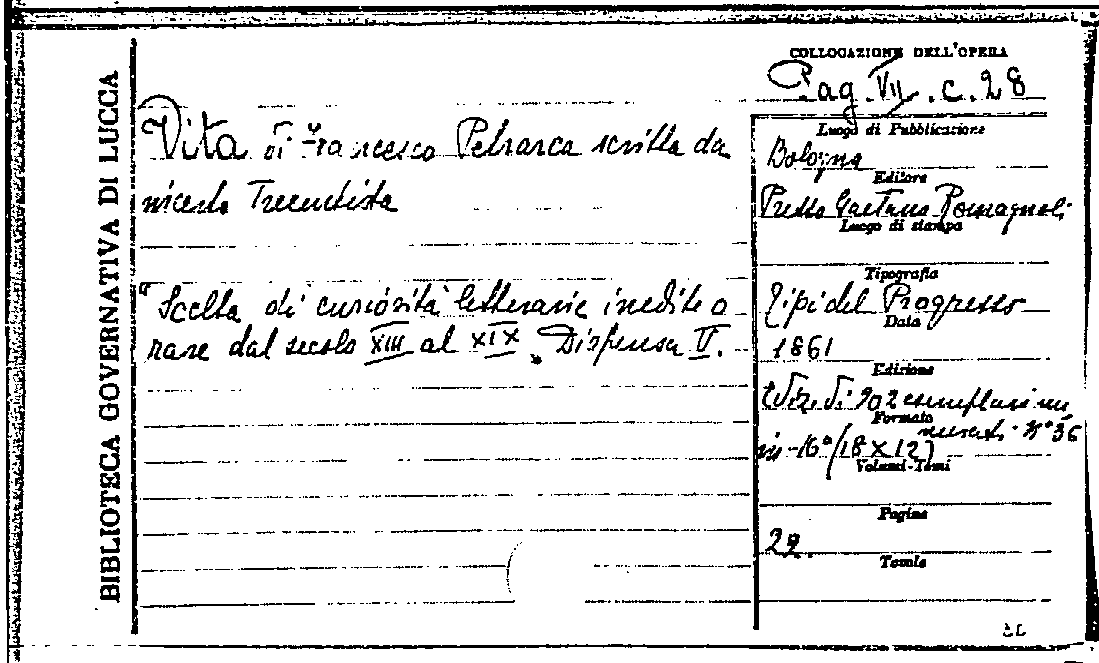 BIBLIOTECA GOVERNATIVA DI LUCCA
COLLOCAZIONE DELL'OPERA
Pag. VII. c. 28
Vita di Francesco Petrarca scritta da
incerto Trecentista
"Scelta di curiosità letterarie inedite o
rare dal secolo XIII al XIX„ Dispensa V.
Luogo di Pubblicazione
Bologna
Editore
Presso Gaetano Romagnoli
Luogo di stampa
Tipografia
Tipi del Progresso
Data
1861
Edizione
Ediz. di 202 esemplari nu
merati. N° 36
Formato
in-16° (18 X 12)
Volumi-Tomi
Pagine
29.
Tavole